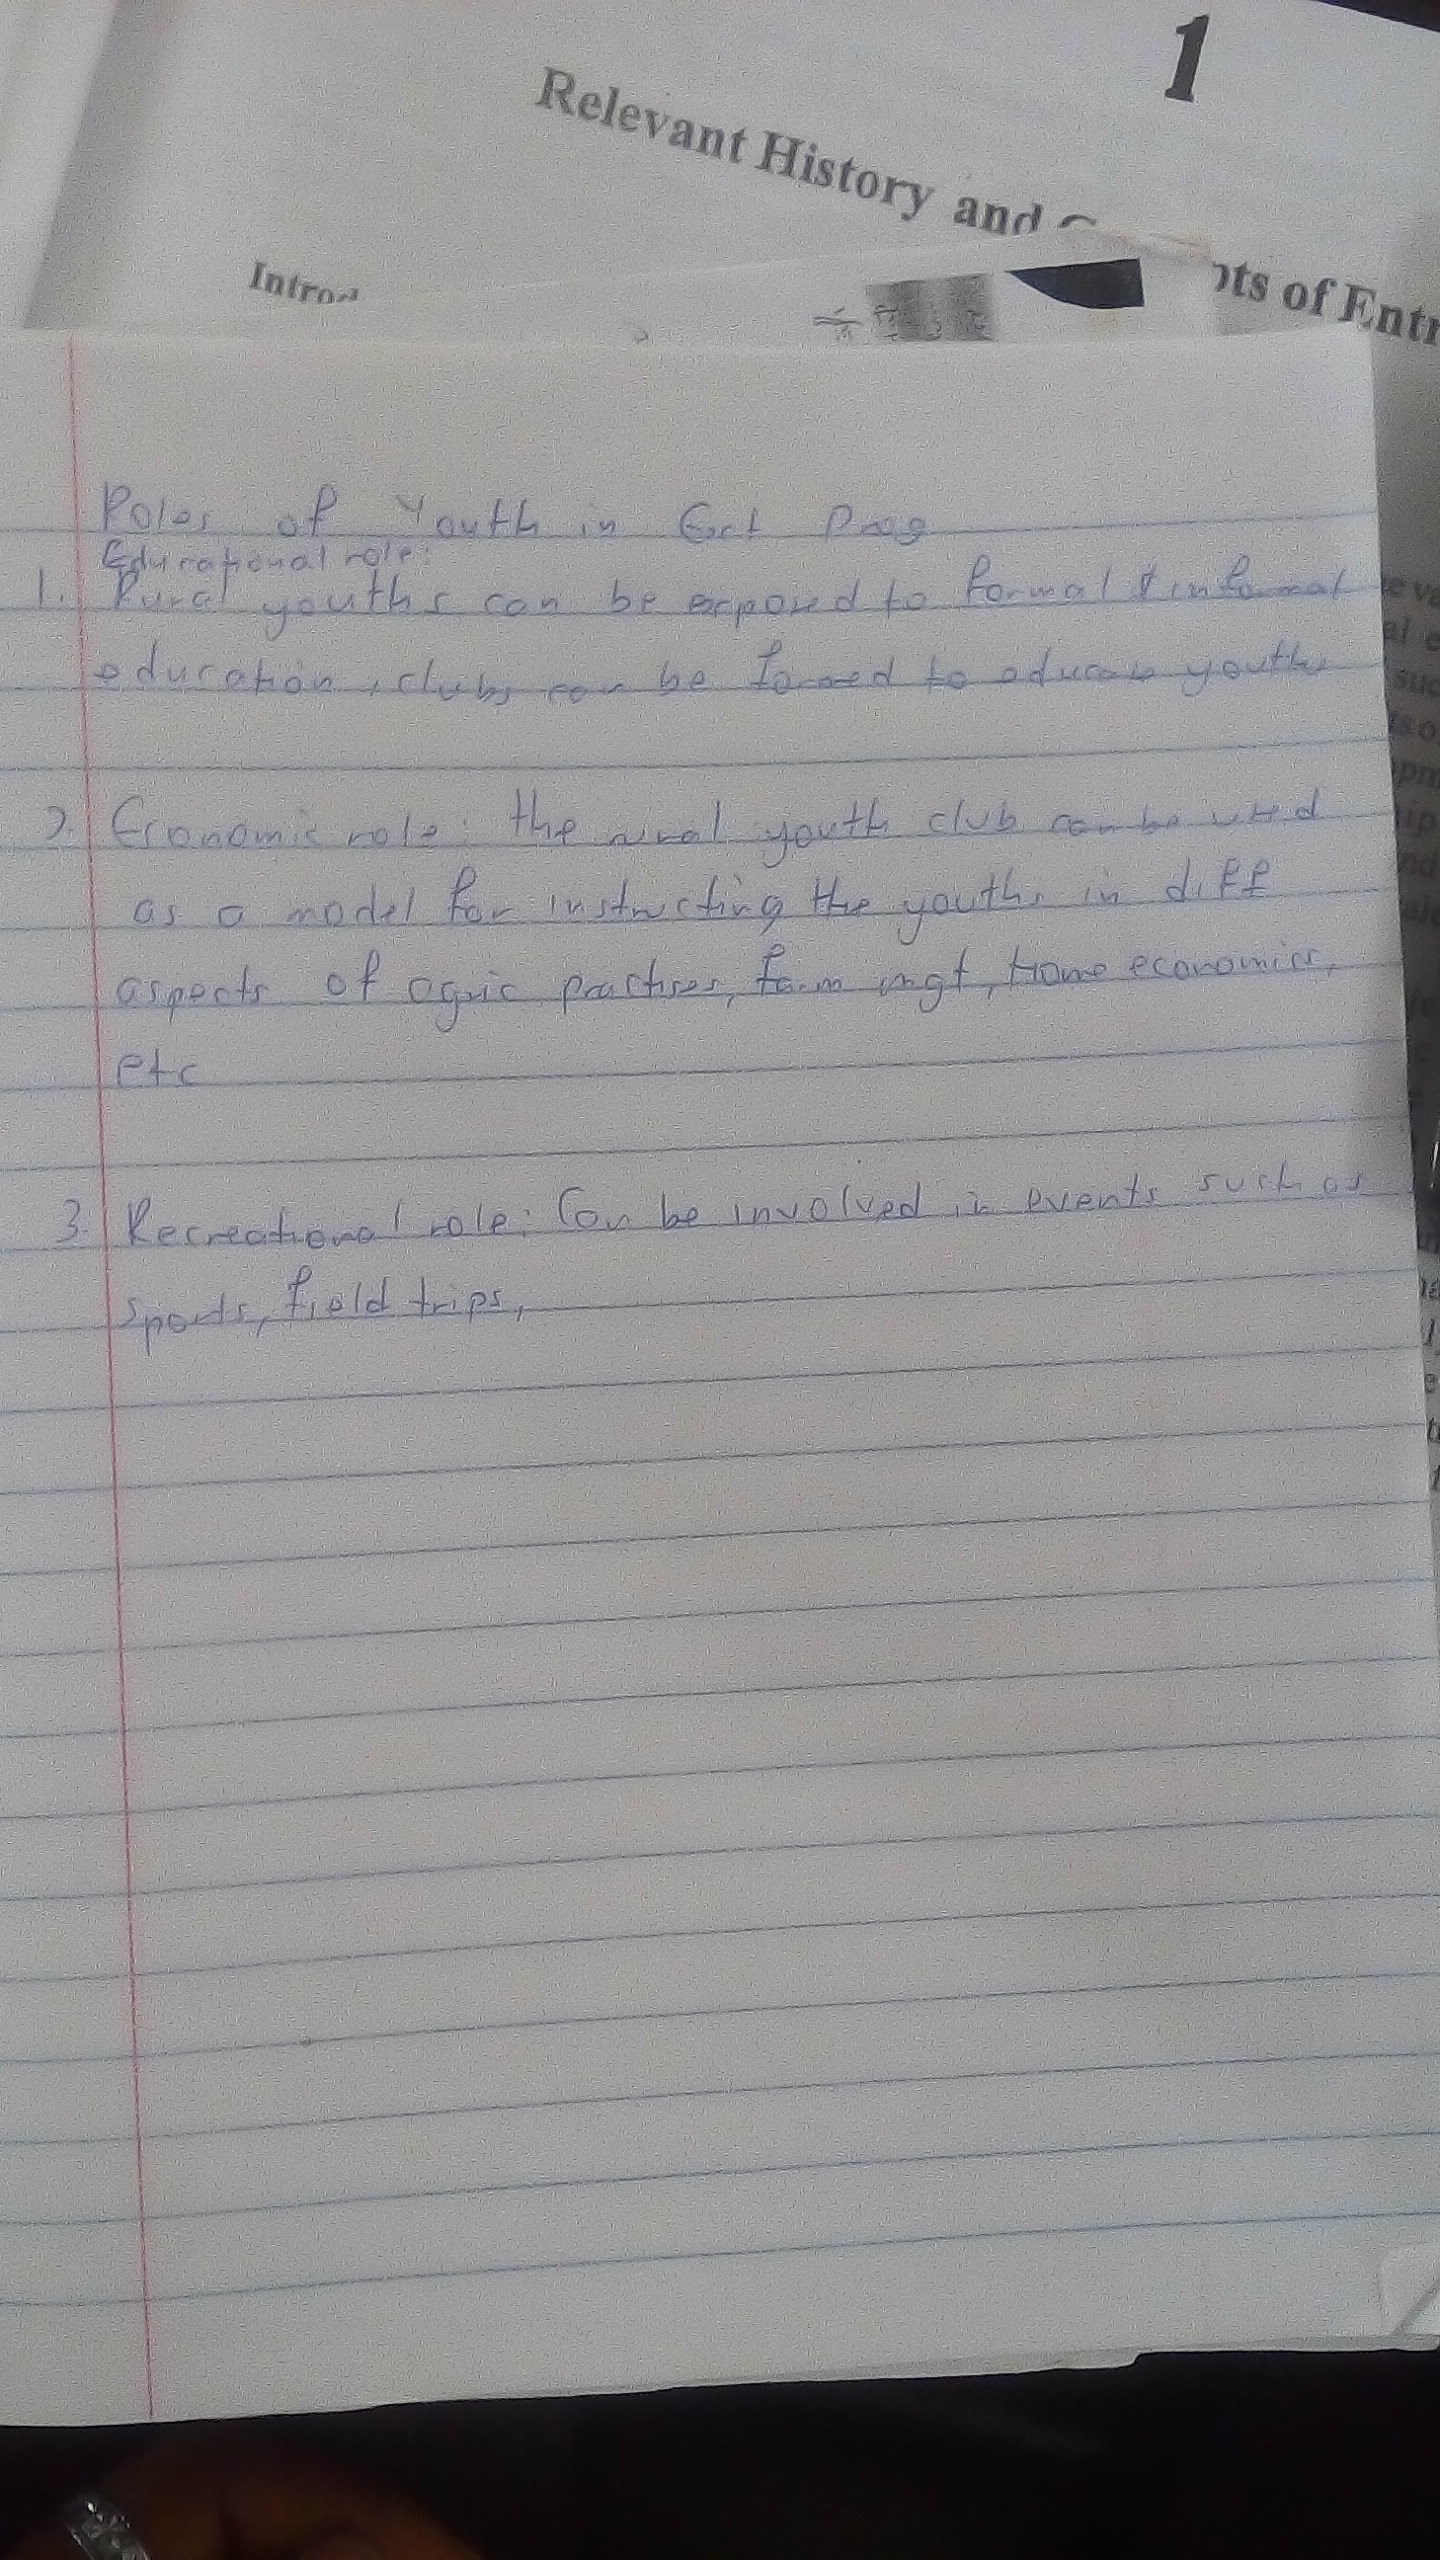 1
Relevant History and
ots of Entr
Introd
Roles of Youth in Ext Prog
Educational role:
1. Rural youths can be exposed to formal & informal
education, clubs can be formed to educate youths
2. Economic role: the rural youth club can be used
as a model for instructing the youths in diff
aspects of agric practises, farm mgt, home economics,
etc
3. Recreational role: Can be involved in events such as
sports, field trips,